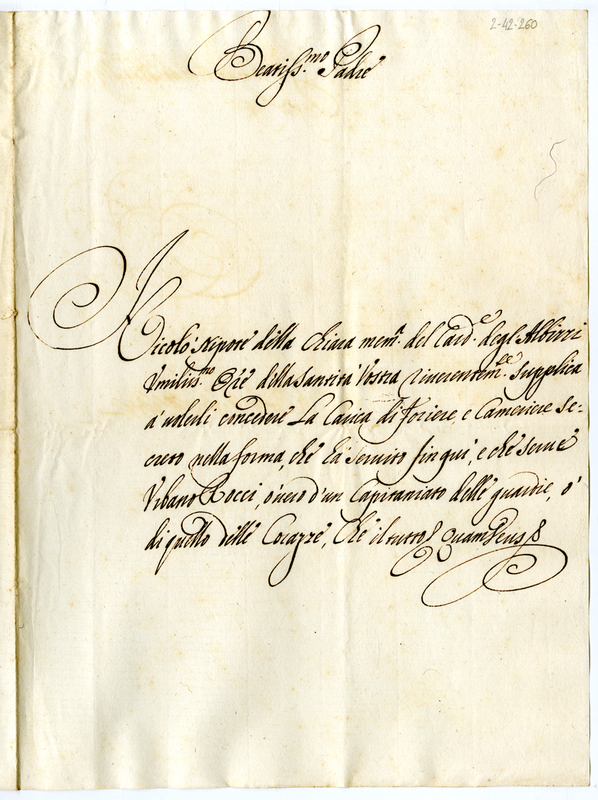 2-42-260
Beatiss.mo Padre
Nicolò Nipote della chiara mem.a del Card.e degl'Albizzi
Umiliss.mo Ore della Santità Vostra riverentem.te supplica
à volerli concedere La Carica di Foriere, e Cameriere se-
creto nella forma, che hà servito sin quì, e che serve
Urbano Rocci, ò vero d'un Capitaniato delle guardie, ò
di quello delle Corazze, Che il tutto &. Quam Deus &.